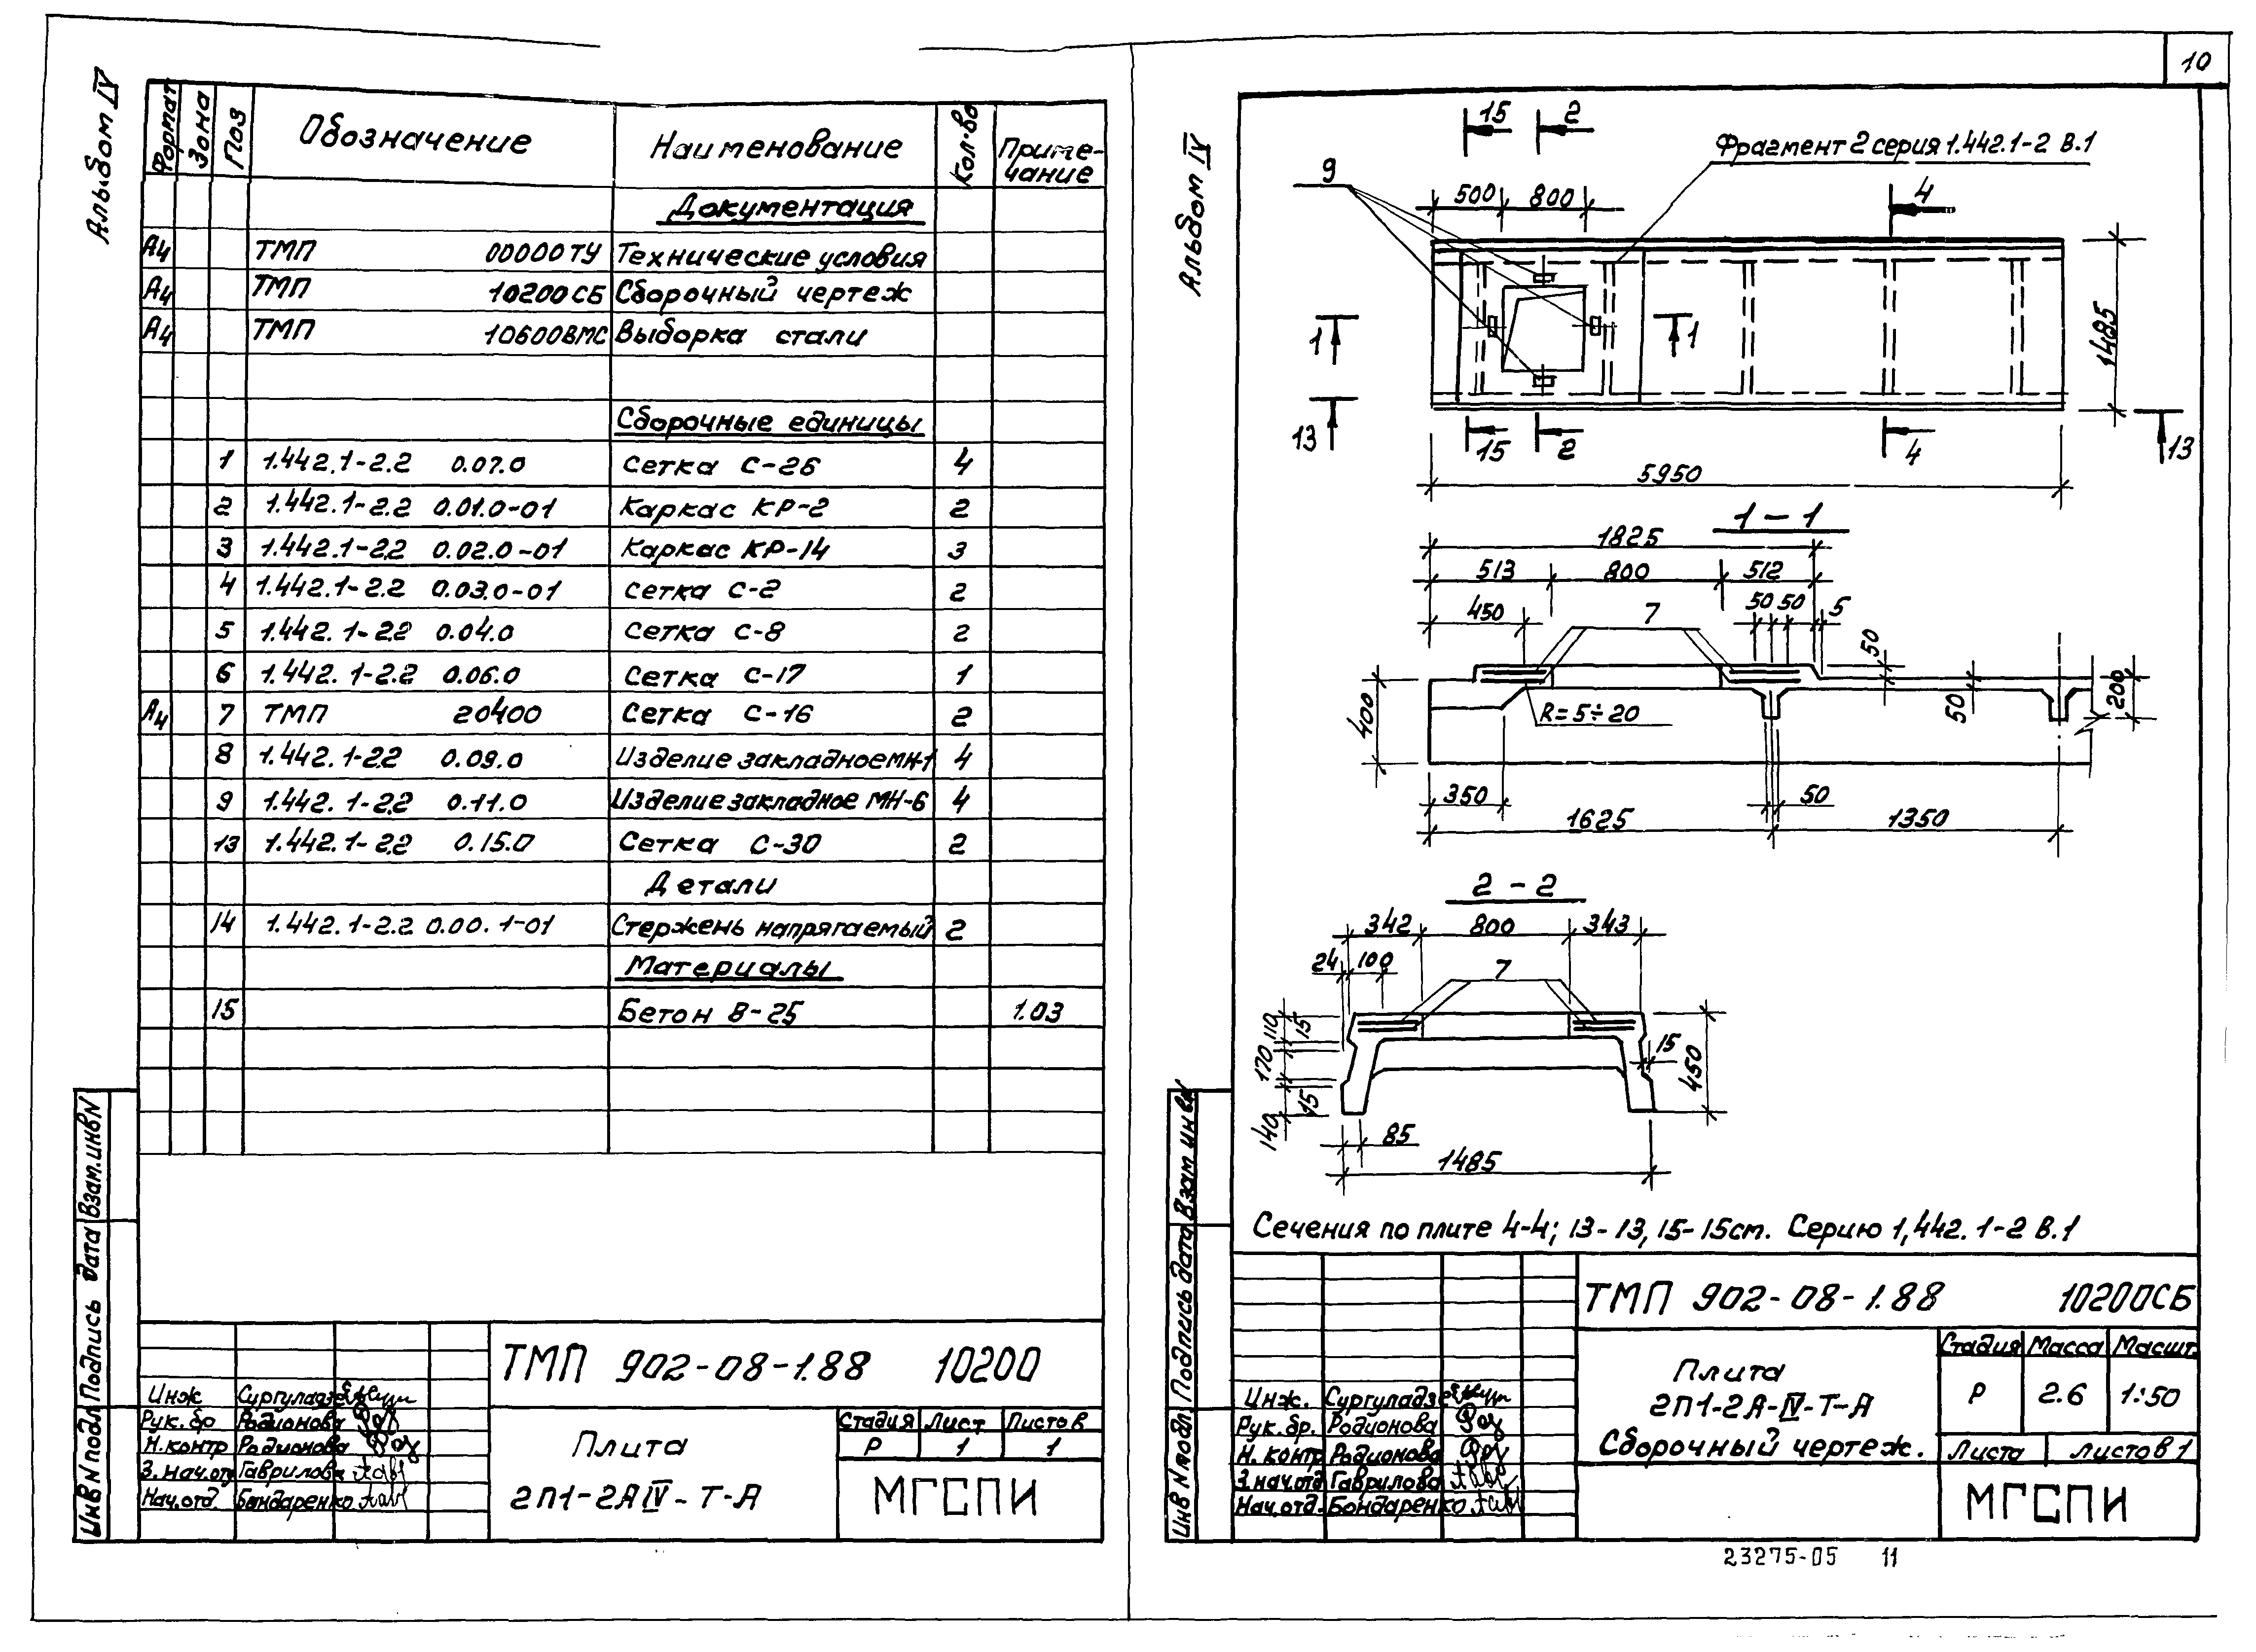 Альбом IV
Формат Зона Поз Обозначение Наименование Кол-во Приме-
чание
Документация
А4 ТМП 00000ТУ Технические условия
А4 ТМП 10200СБ Сборочный чертеж
А4 ТМП 10600ВМС Выборка стали
Сборочные единицы
1 1.442.1-2.2 0.07.0 Сетка С-26 4
2 1.442.1-2.2 0.01.0-01 Каркас КР-2 2
3 1.442.1-2.2 0.02.0-01 Каркас КР-14 3
4 1.442.1-2.2 0.03.0-01 Сетка С-2 2
5 1.442.1-2.2 0.04.0 Сетка С-8 2
6 1.442.1-2.2 0.06.0 Сетка С-17 1
А4 7 ТМП 20400 Сетка С-16 2
8 1.442.1-2.2 0.09.0 Изделие закладное МН-1 4
9 1.442.1-2.2 0.11.0 Изделие закладное МН-6 4
13 1.442.1-2.2 0.15.0 Сетка С-30 2
Детали
14 1.442.1-2.2 0.00.1-01 Стержень напрягаемый 2
Материалы
15 Бетон В-25 1.03
Инв N подл Подпись дата Взам.инвN
ТМП 902-08-1.88 10200
Инж Сургуладзе
Рук.бр Родионова
Н.контр Родионова
З.нач.отд Гаврилова
Нач.отд. Бондаренко
Плита
2П1-2АIV-Т-А
Стадия Лист Листов
Р 1 1
МГСПИ
10
Альбом IV
15 2
Фрагмент 2 серия 1.442.1-2 В.1
9
500 800
4
1 1
1485
13 15 2 4 13
5950
1-1
1825
513 800 512
450 7 50 50 5
50
400
R=5÷20
50
200
350 50
1625 1350
2-2
342 800 343
24 100 7
110 15
170
15
140
15
450
85
1485
Сечения по плите 4-4; 13-13, 15-15 ст. Серию 1,442.1-2 В.1
Инв N подл. Подпись дата Взам инвN
ТМП 902-08-1.88 10200СБ
Инж. Сургуладзе
Рук.бр. Родионова
Н. контр Родионова
З.нач.отд Гаврилова
Нач.отд. Бондаренко
Плита
2П1-2А-IV-Т-А
Сборочный чертеж.
Стадия Масса Масшт.
Р 2.6 1:50
Листа Листов 1
МГСПИ
23275-05 11